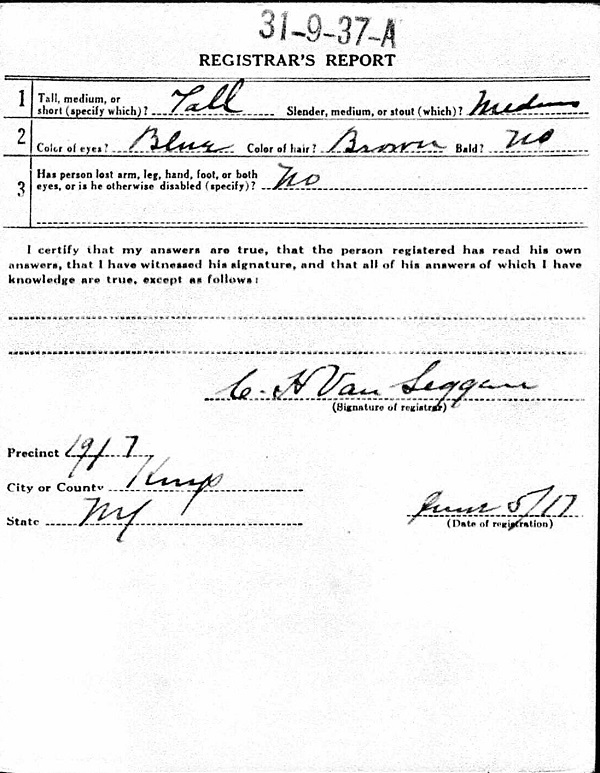 31-9-37-A
REGISTRAR'S REPORT
1 Tall, medium, or short (specify which)? Tall Slender, medium, or stout (which)? Medium
2 Color of eyes? Blue Color of hair? Brown Bald? No
3 Has person lost arm, leg, hand, foot, or both
eyes, or is he otherwise disabled (specify)? No
I certify that my answers are true, that the person registered has read his own
answers, that I have witnessed his signature, and that all of his answers of which I have
knowledge are true, except as follows:
C. H Van
(Signature of registrar)
Precinct
City or County Kings
State NY
June 5/17
(Date of registration)